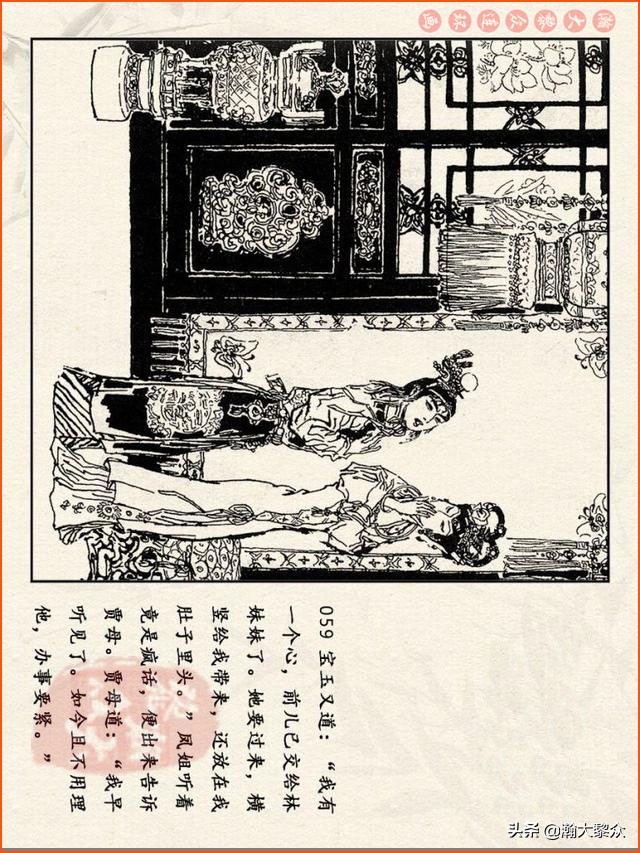 瀚大黎众连环画
059 宝玉又道：“我有
一个心，前儿已交给林
妹妹了。她要过来，横
竖给我带来，还放在我
肚子里头。”凤姐听着
竟是疯话，便出来告诉
贾母。贾母道：“我早
听见了。如今且不用理
他，办事要紧。”
头条 @瀚大黎众